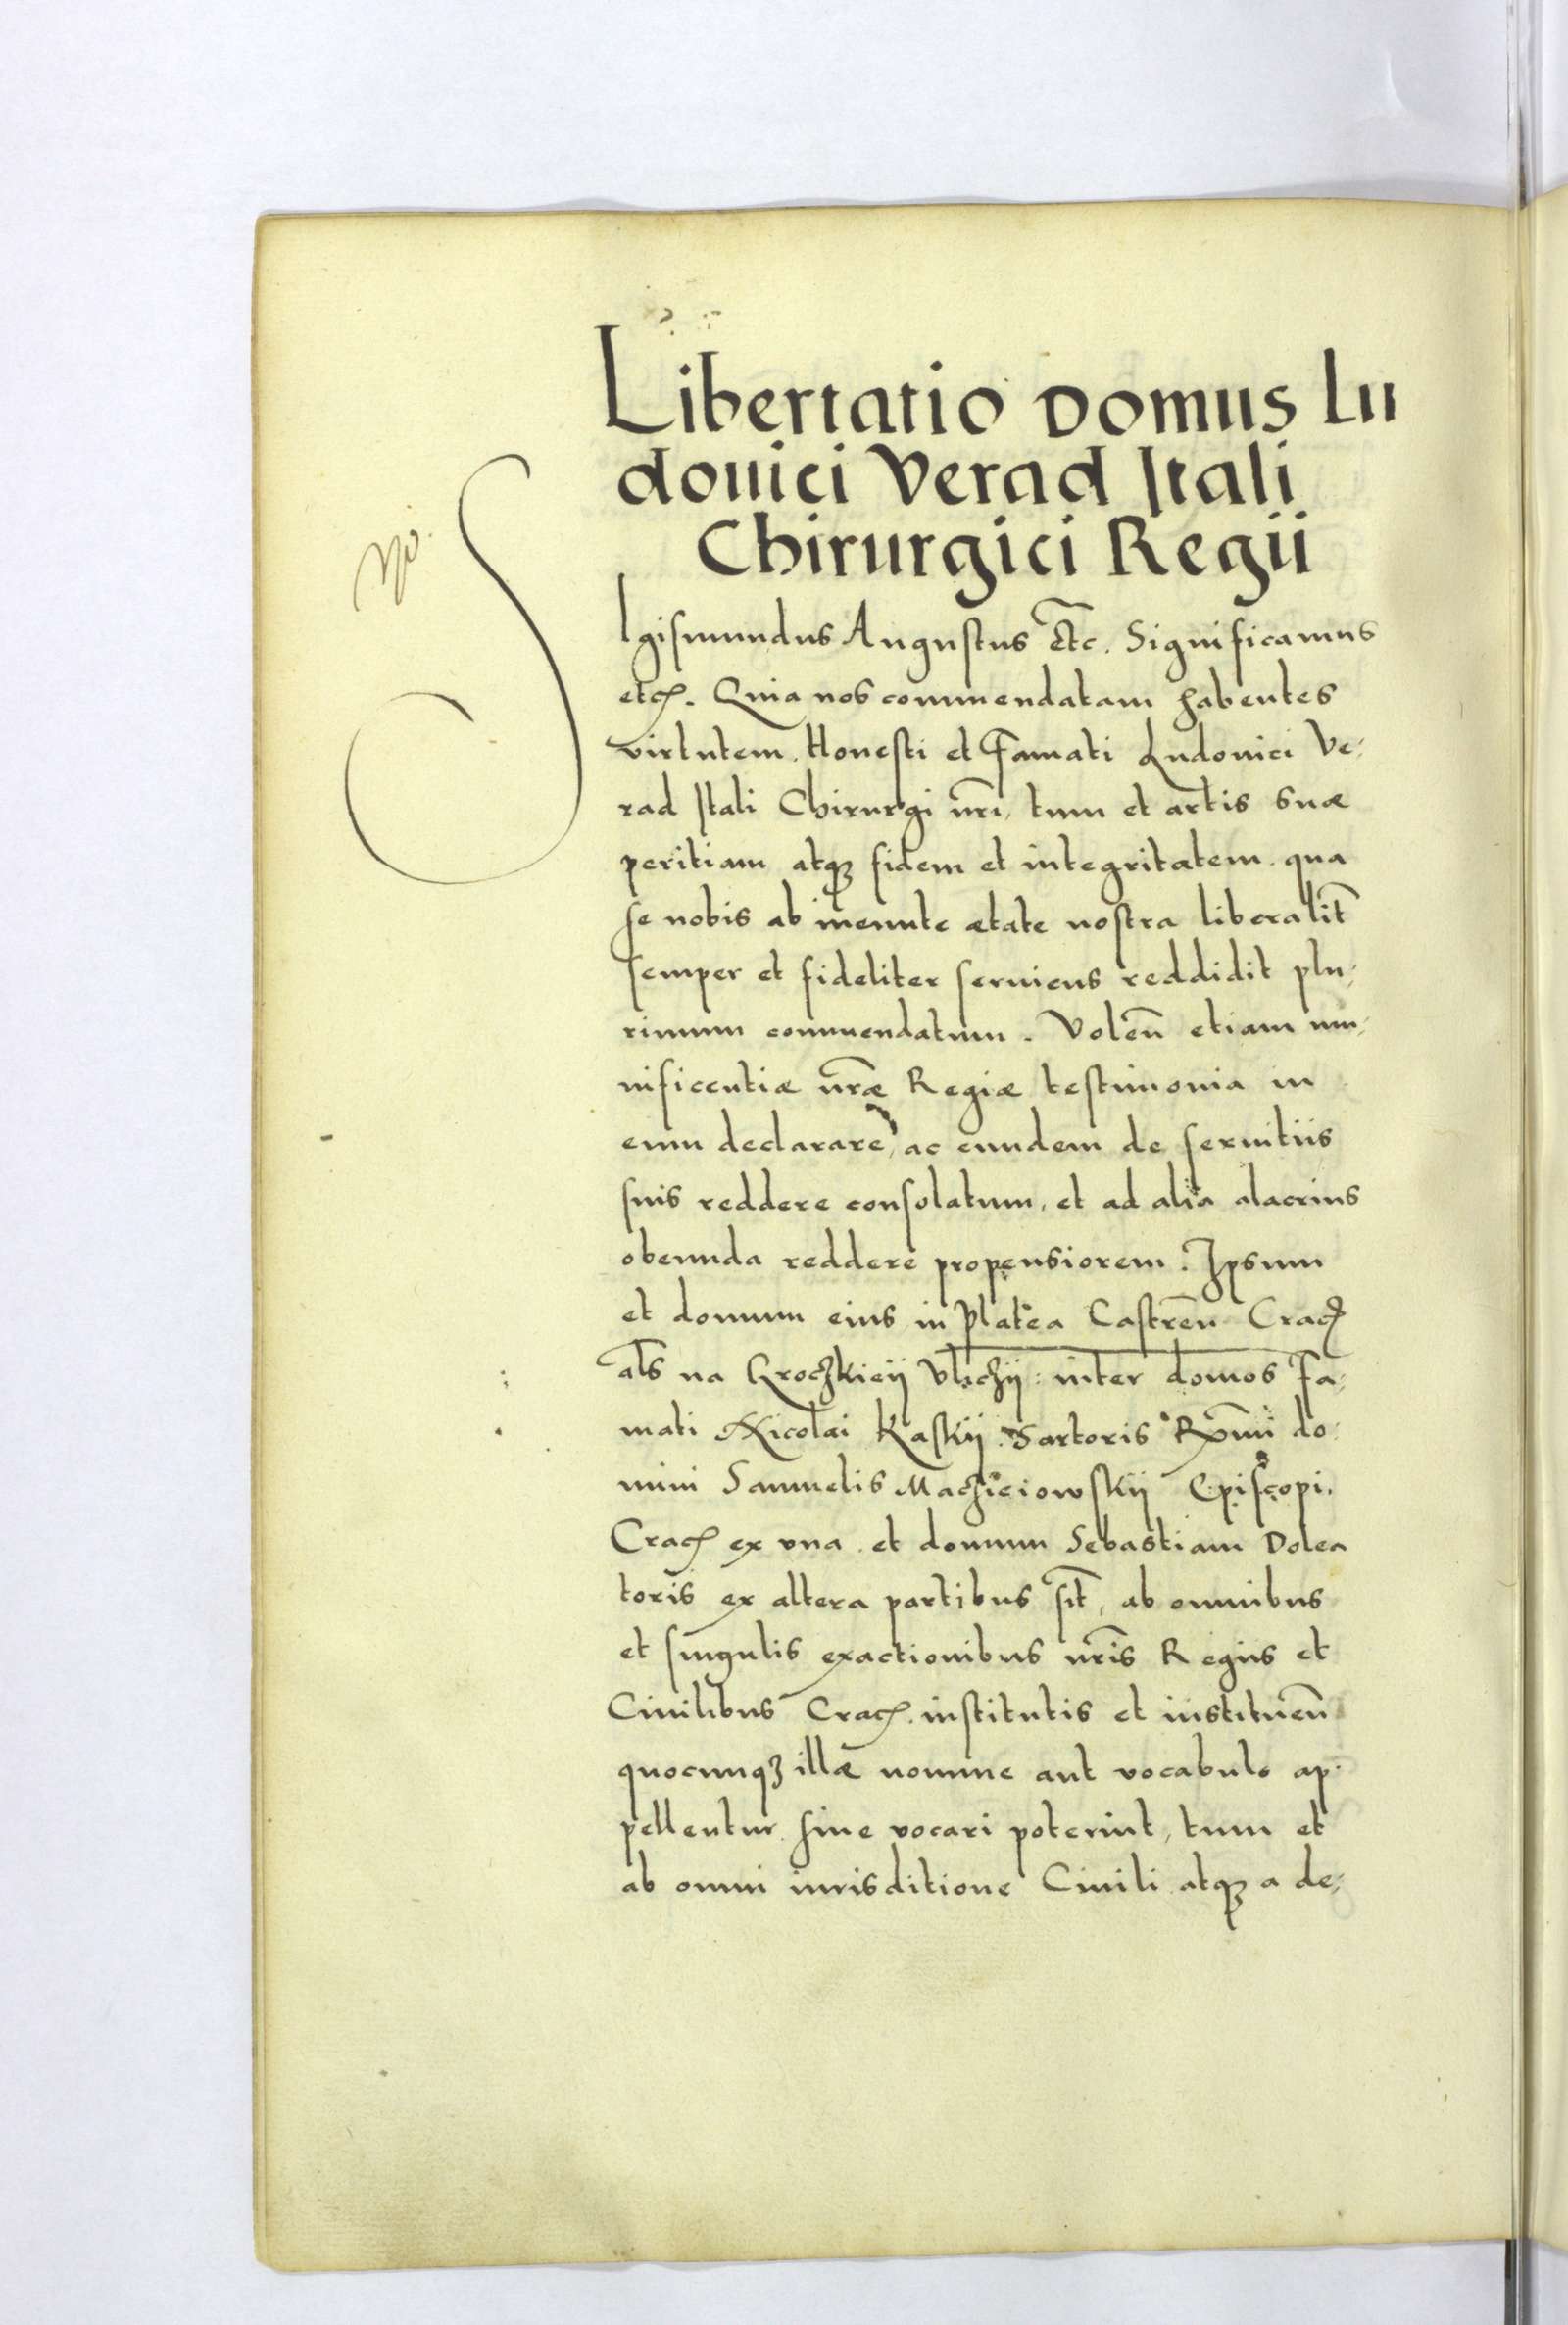 Libertatio Domus Lu
douici Verad Itali
Chirurgici Regii
SIgismundus Augustus Etc. Significamus
etc. Quia nos commendatam habentes
virtutem. Honesti et Famati Ludouici Ve,
rad Itali Chirurgi nr̃i, tum et artis suæ
peritiam atqꝫ fidem et integritatem. qua
se nobis ab ineunte ætate nostra liberalit̃
semper et fideliter seruiens reddidit plu,
rimum commendatum. Voleñ etiam mu,
nificentiæ nr̃æ Regiæ testimonia in
eum declarare, ac eundem de seruitiis
suis reddere consolatum, et ad alia alacrius
obeunda reddere propensiorem. Ipsum
et domum eius in Platea Castreñ Crac
al̃s na Groczkieÿ Vliczÿ: inter domos Fa,
mati Nicolai Kaskÿ Sartoris Rx̃mi do:
mini Samuelis Macziciowskÿ Episcopi.
Crac ex vna et domum Sebastiani Dolea
toris ex altera partibus sit̃, ab omnibus
et singulis exactionibus nr̃is Regiis et
Ciuilibus Crac. institutis et institueñ
quocunqꝫ illæ nomine aut vocabulo ap:
pellentur siue vocari poterint, tum et
ab omni iurisditione Ciuili atqꝫ a de,